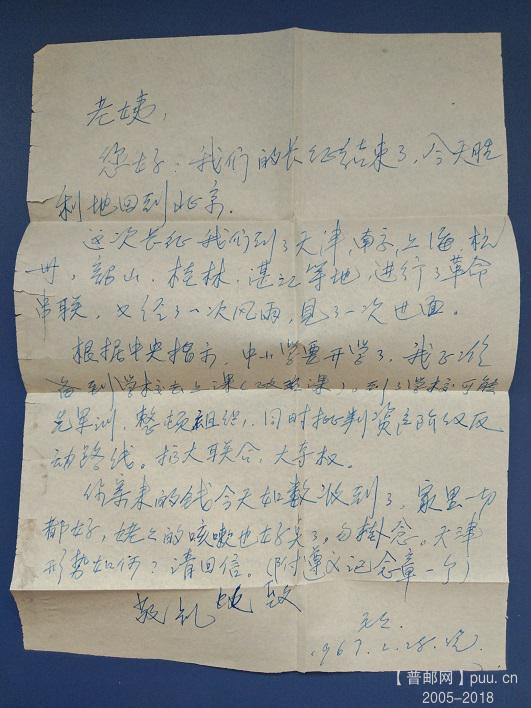 老姨,
您好:我们的长征结束了,今天胜
利地回到北京.
这次长征我们到了天津,南京,上海,杭
州,韶山,桂林,湛江等地,进行了革命
串联,又经了一次风雨,见了一次世面。
根据中央指示,中小学要开学了,我正准
备到学校去上课(),到了学校可能
先军训,整顿组织,同时批判资产阶级反
动路线。搞大联合,大夺权。
你寄来的钱今天如数收到了,家里一切
都好,姥姥的咳嗽也好了,勿掛念。天津
形势如何?请回信。(附遵义记念章一个)
敬礼
1967.2.28.
【普邮网】puu.cn
2005-2018